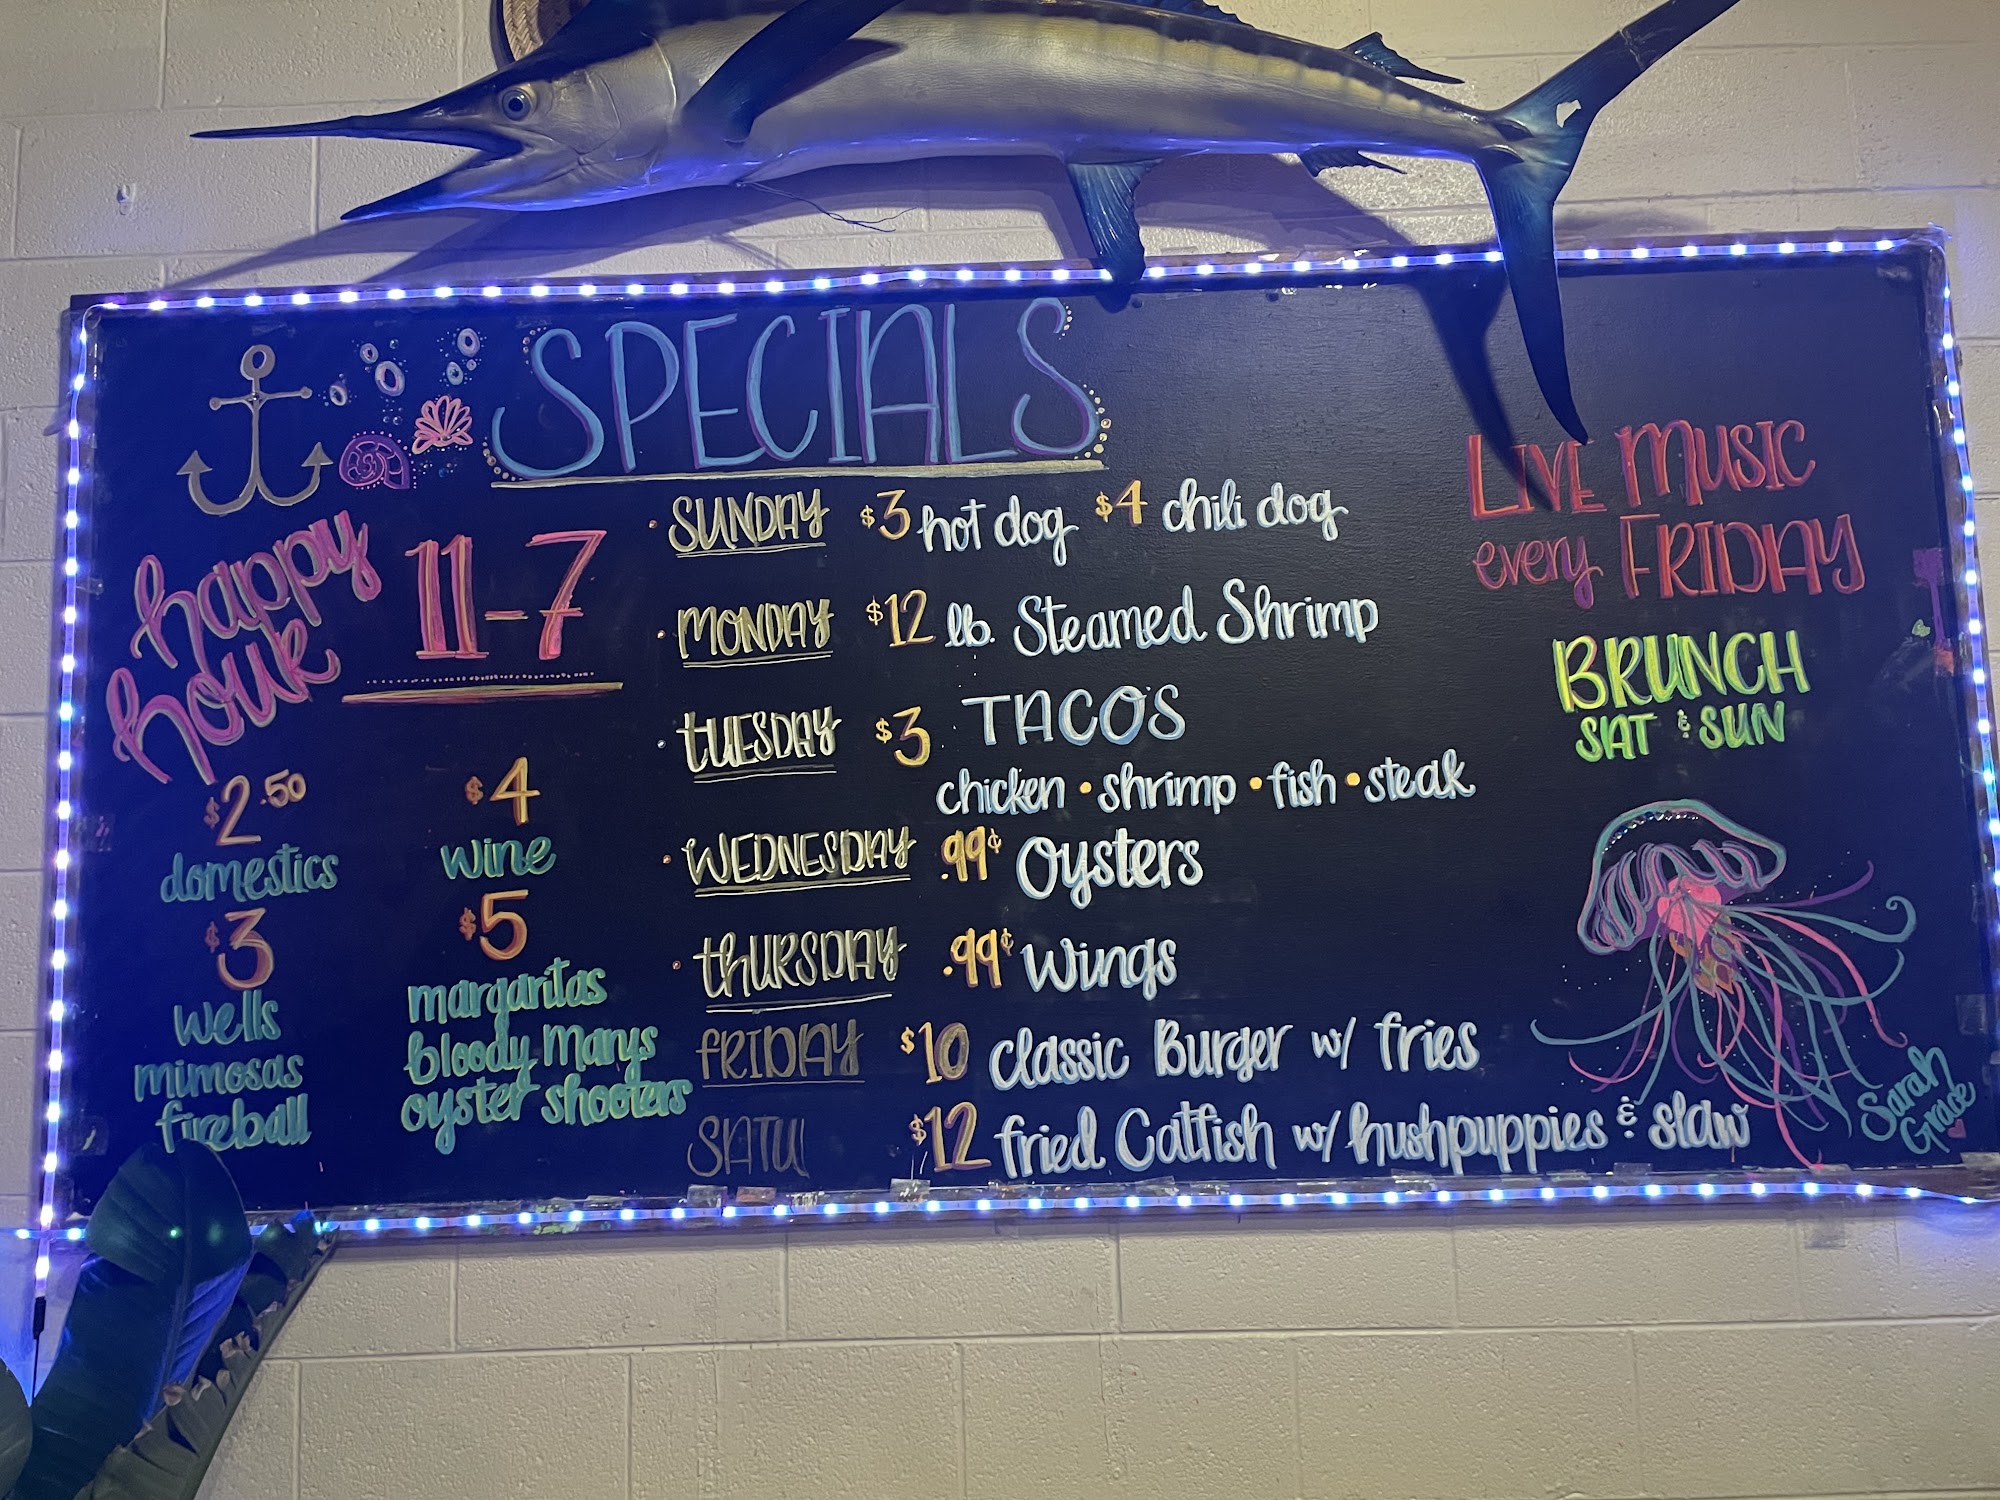 SPECIALS
happy hour
11-7
$2.50
domestics
$3
wells
mimosas
fireball
$4
wine
$5
margaritas
bloody Marys
oyster shooters
SUNDAY $3 hot dog $4 chili dog
MONDAY $12 lb. Steamed Shrimp
TUESDAY $3 TACOS
chicken • shrimp • fish • steak
WEDNESDAY .99¢ Oysters
THURSDAY .99¢ Wings
FRIDAY $10 classic Burger w/ fries
SATU $12 fried Catfish w/ hushpuppies & slaw
LIVE MUSIC
every FRIDAY
BRUNCH
SAT & SUN
Sarah
Grace